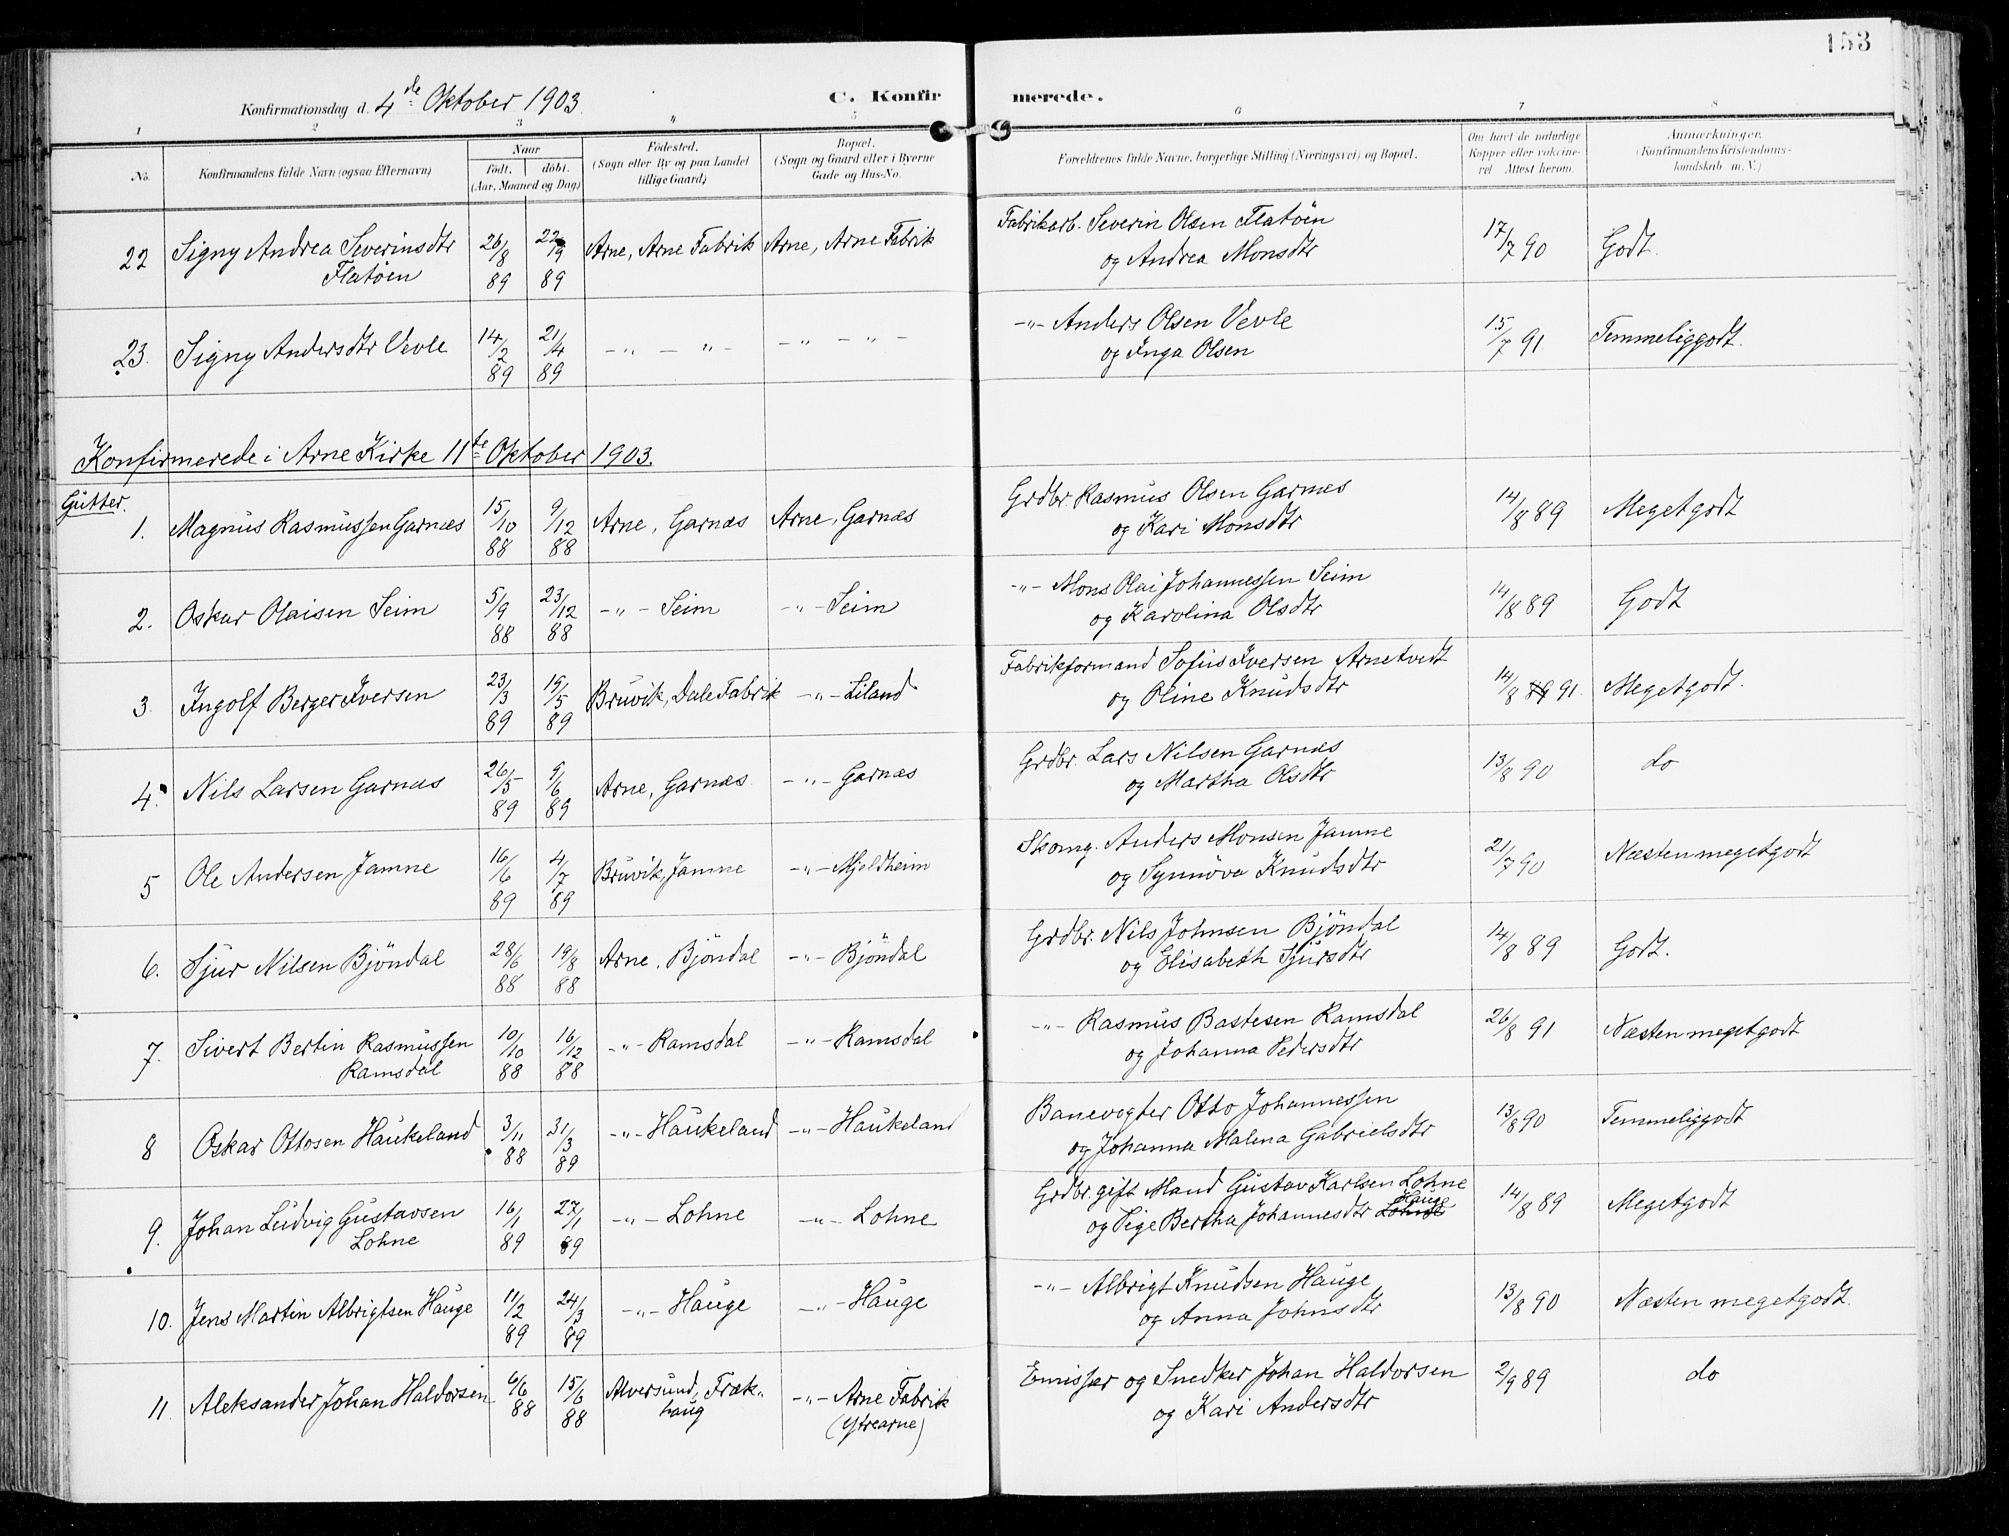 153
Konfirmationsdag d. 4de Oktober 1903.
C. Konfirmerede.
1 2 3 4 5 6 7 8
No. Konfirmandens fulde Navn (ogsaa Efternavn) Naar født. døbt. (Aar, Maaned og Dag) Fødested. (Sogn eller By og paa Landet tillige Gaard) Bopæl. (Sogn og Gaard eller i Byerne Gade og Hus-No. Forældrenes fulde Navne, borgerlige Stilling (Næringsvei) og Bopæl. Om havt de naturlige Kopper eller vaccineret. Attest herom. Anmærkninger. (Konfirmandens Kristendomskundskab m. V.)
22 Signy Andrea Severinsdtr Flatöen 26/8 89 22/9 89 Arne, Arne Fabrik Arne, Arne Fabrik Fabrikarb. Severin Olsen Flatöen og Andrea Monsdtr 17/7 90 Godt.
23. Signy Andersdtr Vevle 14/2 89 21/4 89 -„- -„- -„- -„- -„- Anders Olsen Vevle og Inga Olsen 15/7 91 Temmeliggodt.
Konfirmerede i Arne Kirke 11te Oktober 1903.
Gutter.
1. Magnus Rasmussen Garnæs 15/10 88 9/12 88 Arne, Garnæs Arne, Garnæs Grdbr. Rasmus Olsen Garnæs og Kari Monsdtr 14/8 89 Megetgodt
2. Oskar Olaisen Seim 5/9 88 23/12 88 -„- Seim -„- Seim -„- Mons Olai Johannessen Seim og Karolina Olsdtr 14/8 89 Godt
3. Ingolf Berger Iversen 23/3 89 19/5 89 Bruvik, Dale Fabrik -„- Liland Fabrikformand Sofus Iversen Arnetvedt og Oline Knudsdtr 14/8 89 91 Megetgodt.
4. Nils Larsen Garnæs 26/5 89 9/6 89 Arne, Garnæs. -„- Garnæs Grdbr. Lars Nilsen Garnæs og Martha Olsdtr 13/8 90 do
5 Ole Andersen Jamne 16/6 89 4/7 89 Bruvik, Jamne -„- Mjeldheim Skomg. Anders Monsen Jamne og Synnöva Knudsdtr 21/7 90 Næsten megetgodt
6. Sjur Nilsen Bjöndal 28/6 88 19/8 88 Arne, Bjöndal -„- Bjöndal Grdbr. Nils Johnsen Bjöndal og Elisabeth Sjursdtr 14/8 89 Godt.
7. Sivert Bertin Rasmussen Ramsdal 10/10 88 16/12 88 -„- Ramsdal -„- Ramsdal -„- Rasmus Bastesen Ramsdal og Johanna Pedersdtr 26/8 91 Næsten megetgodt
8 Oskar Ottosen Haukeland 3/11 88 31/3 89 -„- Haukeland -„- Haukeland Banevogter Otto Johannessen og Johanna Malena Gabrielsdtr 13/8 90 Temmeliggodt
9. Johan Ludvig Gustavsen Lohne 16/1 89 27/1 89 -„- Lohne -„- Lohne Grdbr. gift Mand Gustav Karlsen Lohne og Pige Bertha Johannesdtr Lohne Hauge 14/8 89 Megetgodt
10. Jens Martin Albrigtsen Hauge 11/2 89 24/3 89 -„- Hauge -„- Hauge -„- Albrigt Knudsen Hauge og Anna Johnsdtr 13/8 90 Næsten megetgodt.
11. Aleksander Johan Haldorsen 6/6 88 15/6 88 Alversund, Frækhaug -„- Arne Fabrik (Ytrearne) Emissær og Snedker Johan Haldorsen og Kari Andersdtr 2/9 89 do